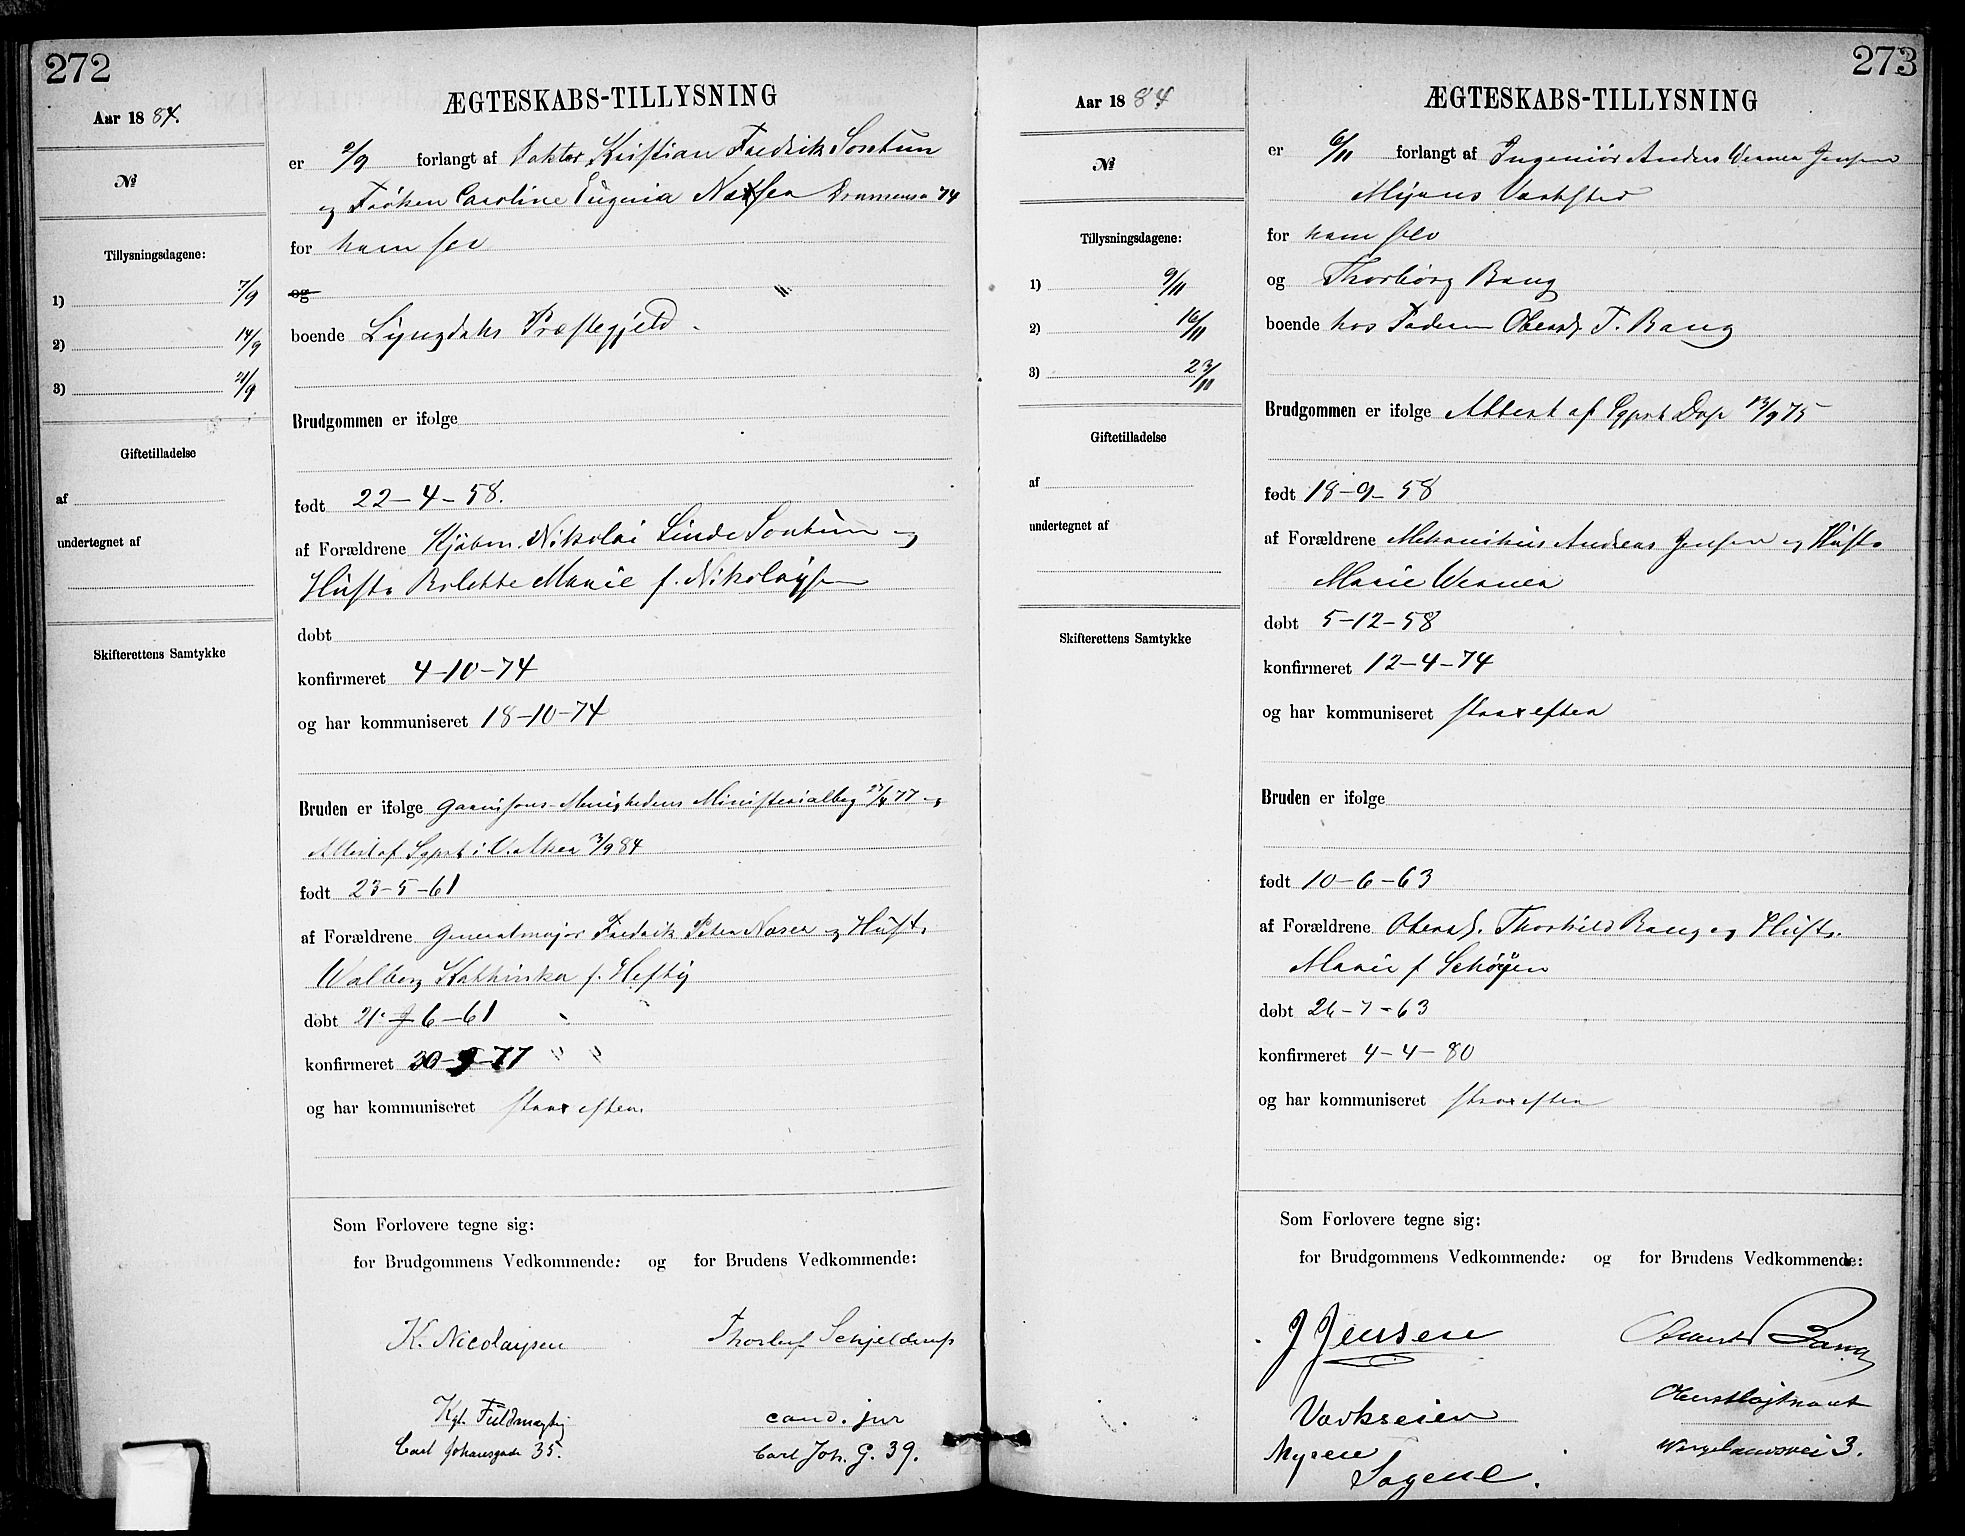 272
Aar 1884.
№
Tillysningsdagene:
1) 7/9
2) 14/9
3) 21/9
Giftetilladelse
af
undertegnet af
Skifterettens Samtykke
ÆGTESKABS-TILLYSNING
er 2/9 forlangt af Doktor Kristian Fredrik Sontum
og Frøken Caroline Eugenia Næser Drammensv 74
for ham selv
og "
boende Lyngdals Præstegjeld
Brudgommen er ifølge
født 22-4-58.
af Forældrene Kjøbm. Nikolai Linde Sontum og
Hustr Bolette Marie f. Nikolaysen
døbt
konfirmeret 4-10-74
og har kommuniseret 18-10-74
Bruden er ifølge Garnisons-Menighedens Ministerialbog 77 og
Attest af Sgprst i V. Aker 3/9 84
født 23-5-61
af Forældrene Generalmajor Fredrik Peter Næser og Hustr
Walborg Kathinka f. Heftÿ
døbt 21-6-61
konfirmeret 30-9-77
og har kommuniseret straxefter.
Som Forlovere tegne sig:
for Brudgommens Vedkommende: og for Brudens Vedkommende:
K. Nicolaysen Thorleif Schjelderup
Kgl. Fuldmægtig cand. jur
Carl Johansgade 35. Carl Joh. G. 39.
273
Aar 1884
№
Tillysningsdagene:
1) 9/11
2) 16/11
3) 23/11
Giftetilladelse
af
undertegnet af
Skifterettens Samtykke
ÆGTESKABS-TILLYSNING
er 6/11 forlangt af Ingeniør Anders Werner Jensen
Myrens Værksted
for ham selv
og Thorborg Bang
boende hos Faderen Oberstl. T. Bang
Brudgommen er ifølge Attest af 75
født 18-9-58
af Forældrene Mekanikus Andreas Jensen og Hustr
Marie Werner
døbt 5-12-58
konfirmeret 12-4-74
og har kommuniseret straxefter
Bruden er ifølge
født 10-6-63
af Forældrene Oberstl. Thorkild Bang og Hustr.
Marie f Schøÿen
døbt 26-7-63
konfirmeret 4-4-80
og har kommuniseret straxefter
Som Forlovere tegne sig:
for Brudgommens Vedkommende: og for Brudens Vedkommende:
J Jensen Bang
Værkseier Oberstløjtnant
Myren Wergelandsvei 3.
Sagene.